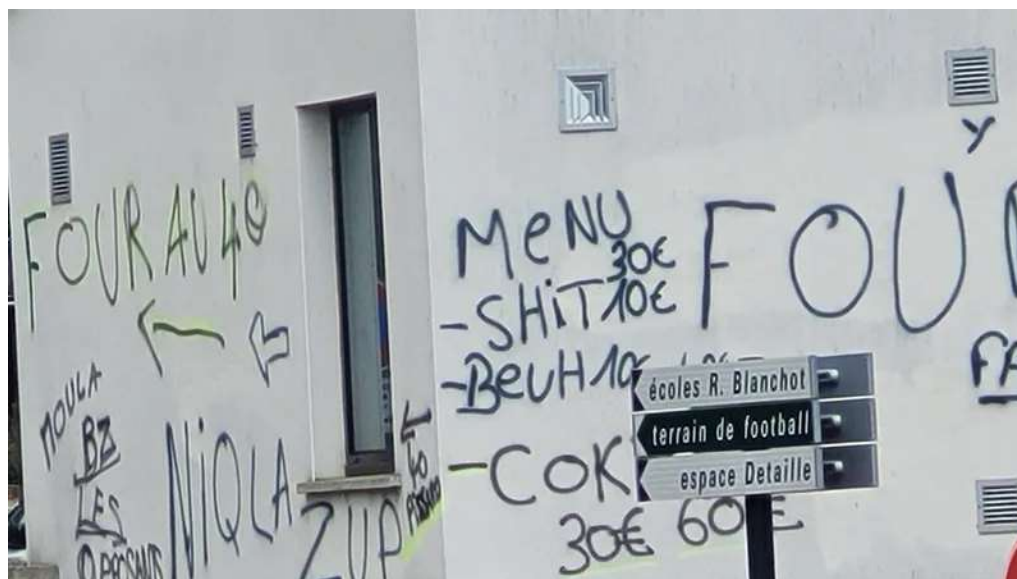 FOUR AU 40
MOULA
BZ
LES
NIQLA
ZUP
40
MeNU
30€
-SHiT 10€
-BeUH 10€
-COK
30€ 60€
Y
FOU
FA
écoles R. Blanchot
terrain de football
espace Detaille